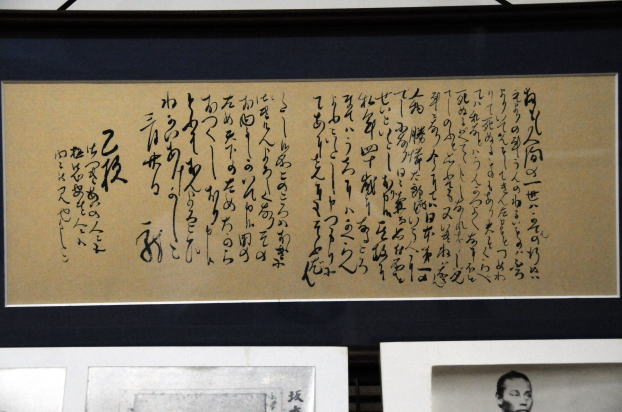 扨も〳〵人間の一世ハがてんの行ぬハ
元よりの事うんのわるいものハふろ
よりいでんとしてきんたまをつめわ
りて死ぬるものもあり夫とくらべて
ハ私などハうんがつよくなにほど
死ぬるバへでゝもしなれずじぶん
でしのふと思ふても又いきねバならん
事ニなり今にてハ日本第一の
人物勝憐太郎殿という人に
でしになり日々兼而思付所を
せいといたしおり申候其故に
私年四十歳になるころ
までハうちにハかへらん
よふニいたし申つもりにて
あにさんにもそふだん
いたし候所このごろハおゝきに
御きげんよろしくなりその
おゆるしがいで申候国の
ため天下のためちから
おつくしおり申候
どふぞおんよろこび
ねがいあげかしこ
三月廿日 龍
乙様
御つきあいの人ニも
極御心安き人ニハ
内々御見せかしこ
坂